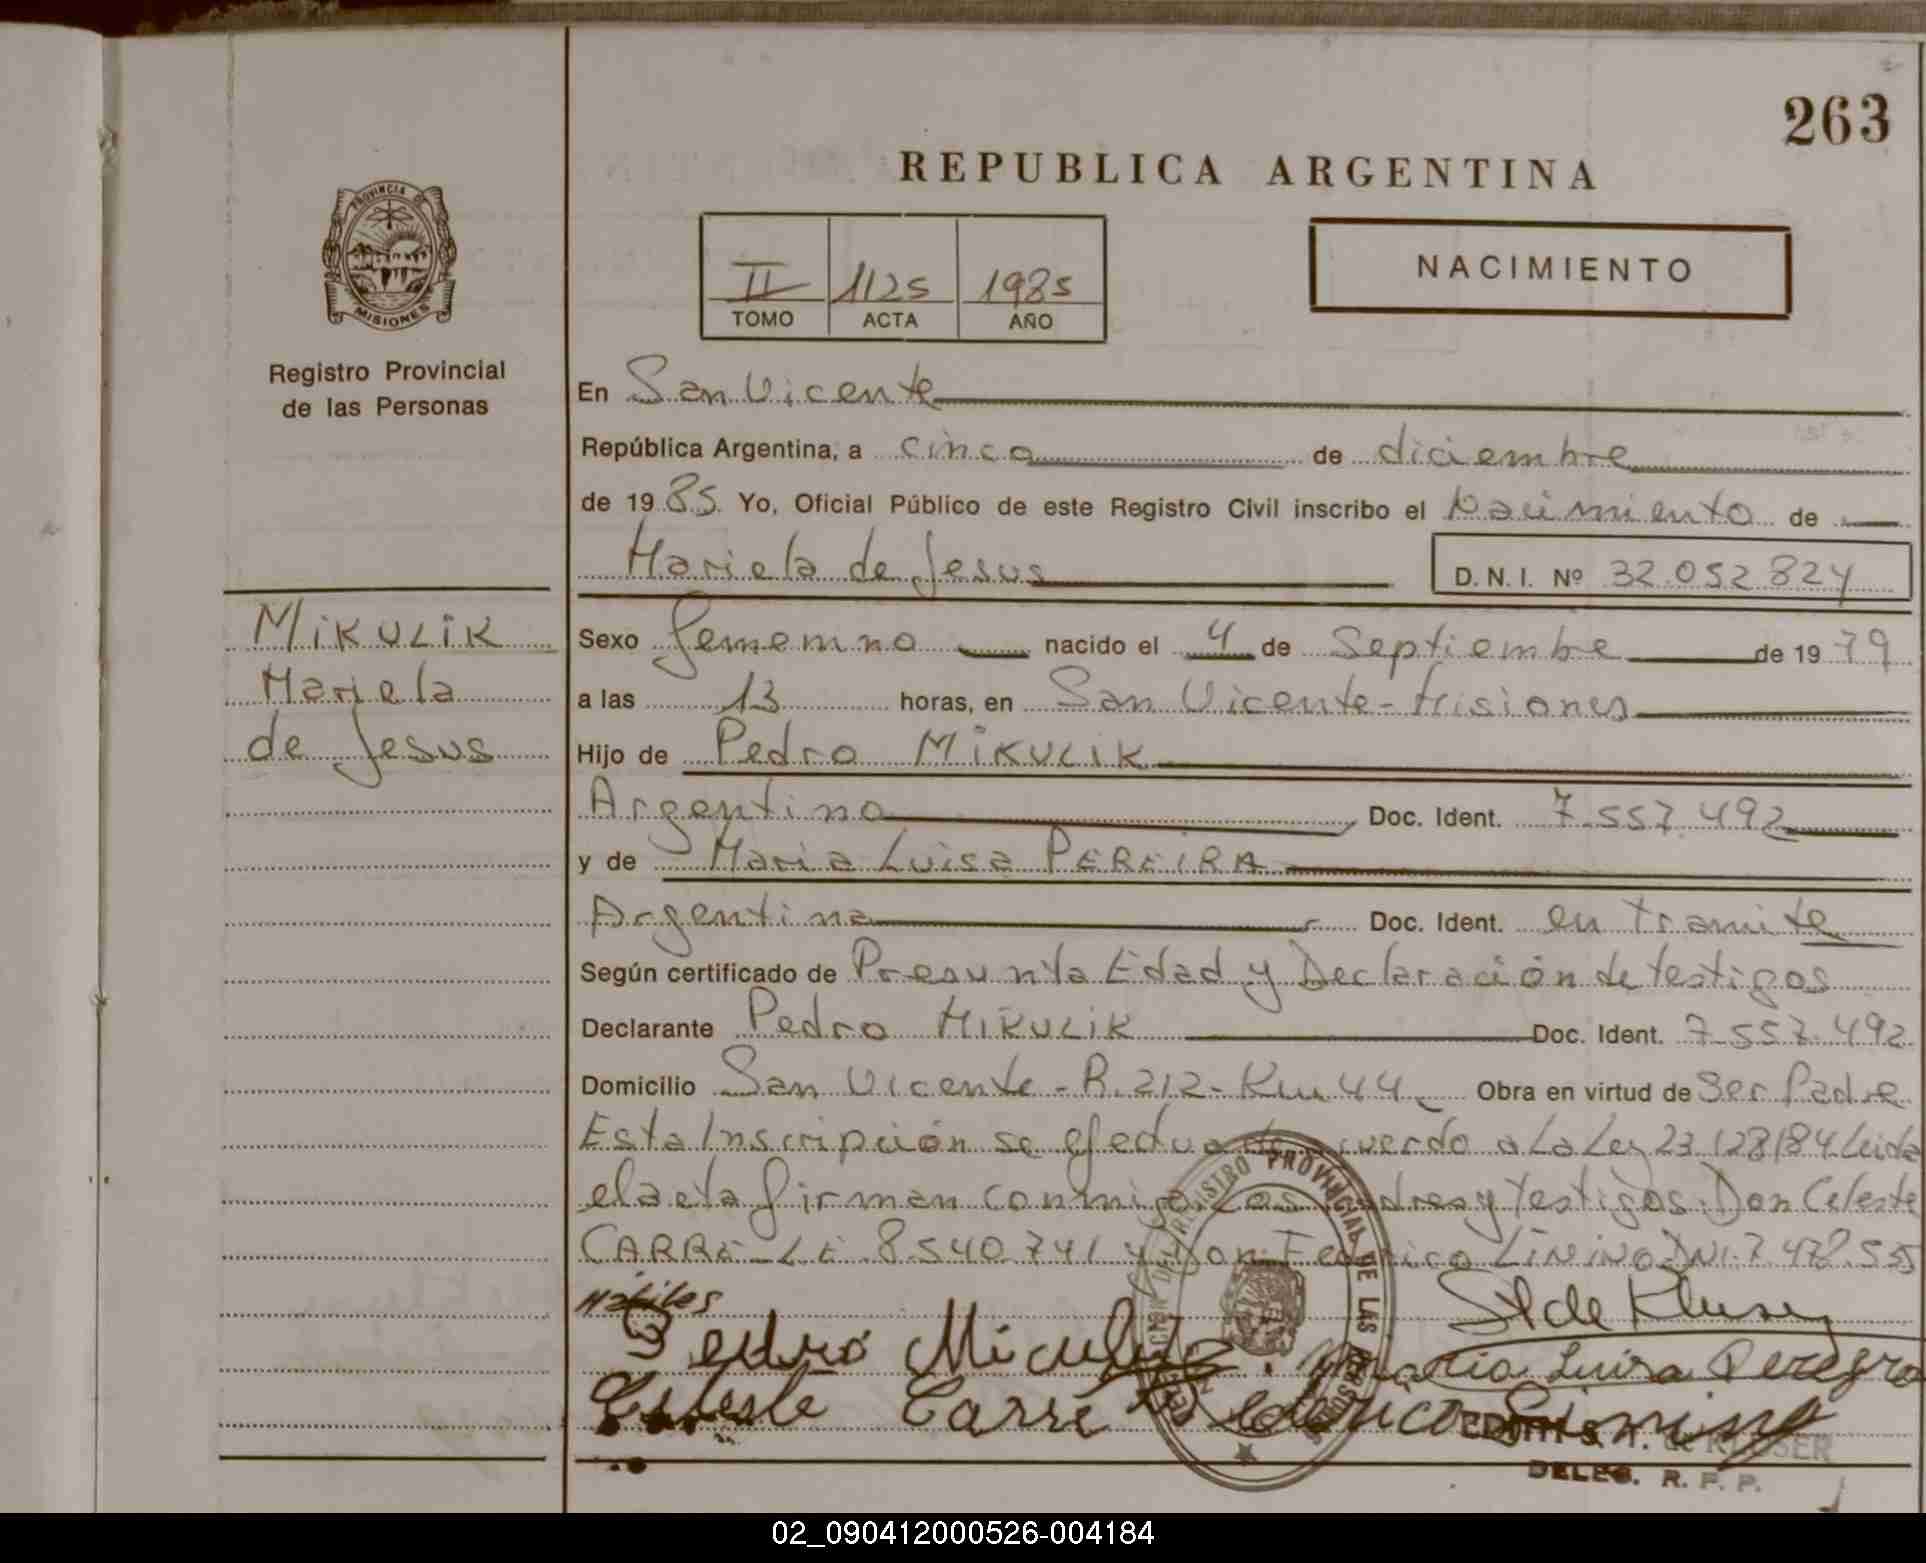 263
REPUBLICA ARGENTINA
PROVINCIA DE
MISIONES
Registro Provincial
de las Personas
II 1125 1985
TOMO ACTA AÑO
NACIMIENTO
En San Vicente
República Argentina, a cinco de diciembre
de 1985 Yo, Oficial Público de este Registro Civil inscribo el Nacimiento de
Mariela de Jesus D.N.I. Nº 32.052.824
MIKULIK
Mariela
de Jesus
Sexo femenino nacido el 4 de Septiembre de 1979
a las 13 horas, en San Vicente - Misiones
Hijo de Pedro MIKULIK
Argentino Doc. Ident. 7.557.492
y de Maria Luisa PEREIRA
Argentina Doc. Ident. en tramite
Según certificado de Presunta Edad y Declaración de testigos
Declarante Pedro MIKULIK Doc. Ident. 7.557.492
Domicilio San Vicente - R.212 - Km 44 Obra en virtud de Ser Padre
Esta Inscripción se efectua de acuerdo a La Ley 23.128/84 Leida
el acta firman conmigo, Los Padres y testigos: Don Celeste
CARRE - LE. 8.540.741 y Don Federico LININO DNI. 7.478.555
Hábiles
Pedro Miculik Maria Luisa Pereyra
Celeste Carré Federico Linino
DELEG. R. P. P.
02_090412000526-004184